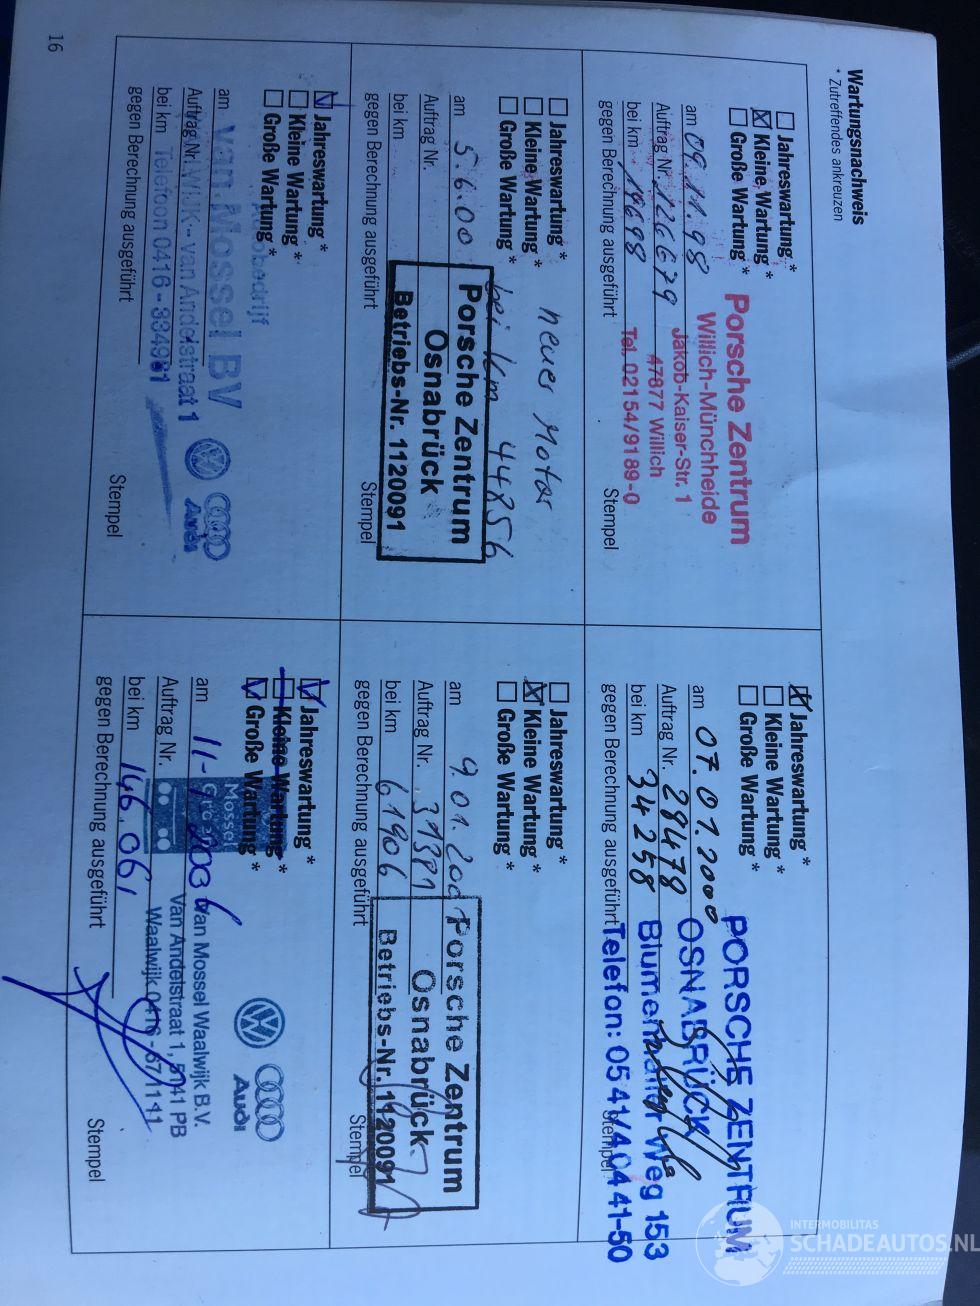 Wartungsnachweis
* Zutreffendes ankreuzen
Jahreswartung *
Kleine Wartung *
Große Wartung *
am 09.11.98
Auftrag Nr. 1266679
bei km 19698
gegen Berechnung ausgeführt
Porsche Zentrum
Willich-Münchheide
Jakob-Kaiser-Str. 1
47877 Willich
Tel. 02154/9189-0
Stempel
Jahreswartung *
Kleine Wartung *
Große Wartung *
am 07.07.2000
Auftrag Nr. 28478
bei km 34258
gegen Berechnung ausgeführt
PORSCHE ZENTRUM
OSNABRÜCK
Blumenhaller Weg 153
Telefon: 0541/40441-50
Stempel
Jahreswartung *
Kleine Wartung *
Große Wartung *
neuer Motor
bei km 44856
am 5.6.00
Auftrag Nr.
bei km
gegen Berechnung ausgeführt
Porsche Zentrum
Osnabrück
Betriebs-Nr. 1120091
Stempel
Jahreswartung *
Kleine Wartung *
Große Wartung *
am 9.01.200
Auftrag Nr. 31381
bei km 61906
gegen Berechnung ausgeführt
Porsche Zentrum
Osnabrück
Betriebs-Nr. 1120091
Stempel
Jahreswartung *
Kleine Wartung *
Große Wartung *
am
Auftrag Nr.
bei km
gegen Berechnung ausgeführt
van Mossel BV
van Andelstraat 1
Telefoon 0416 - 334981
Audi
Stempel
Jahreswartung *
Kleine Wartung *
Große Wartung *
am 11-
Auftrag Nr.
bei km 146.061
gegen Berechnung ausgeführt
Mossel
Van Mossel Waalwijk B.V.
Van Andelstraat 1, 5141 PB
Waalwijk 0416-671111
Audi
Stempel
16
INTERMOBILITAS
SCHADEAUTOS.NL